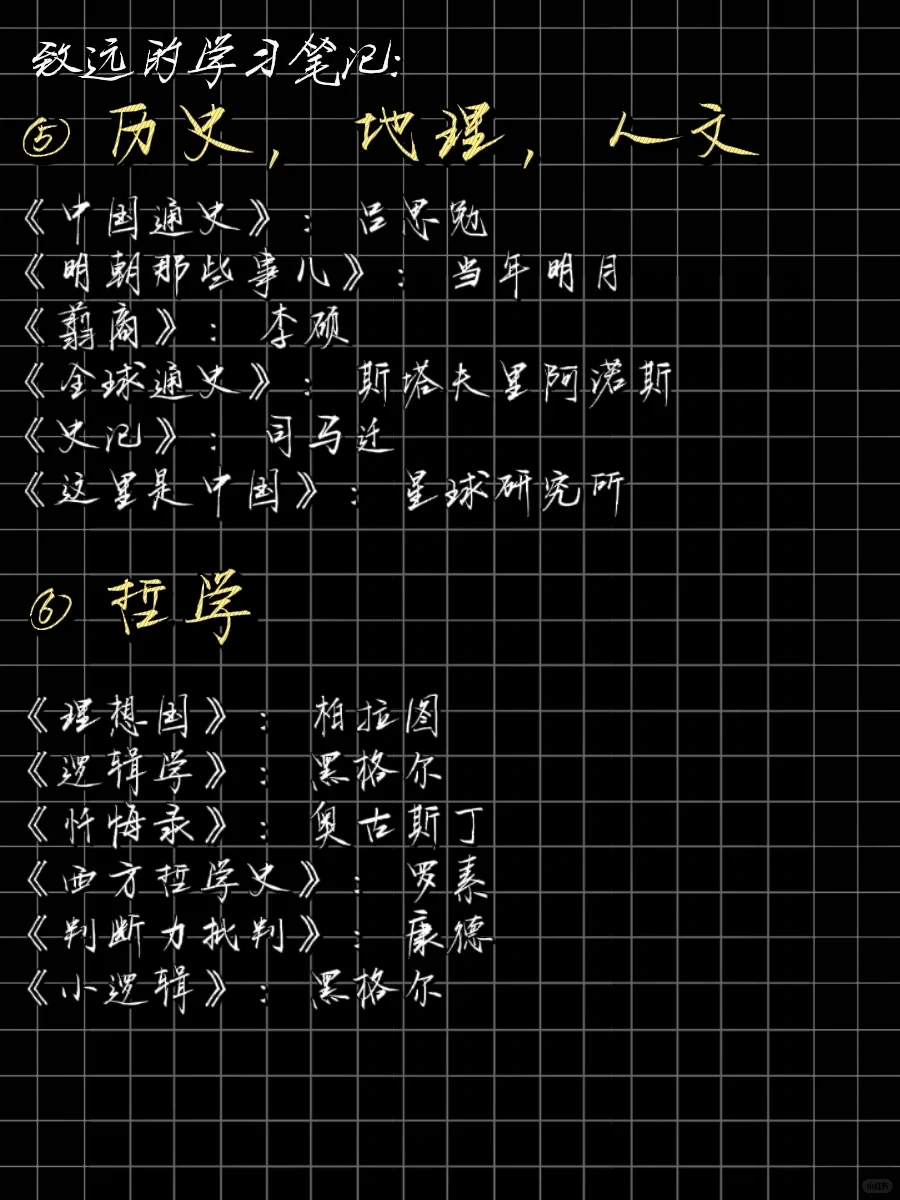 致远的学习笔记:
⑤ 历史, 地理, 人文
《中国通史》: 吕思勉
《明朝那些事儿》: 当年明月
《翦商》: 李硕
《全球通史》: 斯塔夫里阿诺斯
《史记》: 司马迁
《这里是中国》: 星球研究所
⑥ 哲学
《理想国》: 柏拉图
《逻辑学》: 黑格尔
《忏悔录》: 奥古斯丁
《西方哲学史》: 罗素
《判断力批判》: 康德
《小逻辑》: 黑格尔
小红书